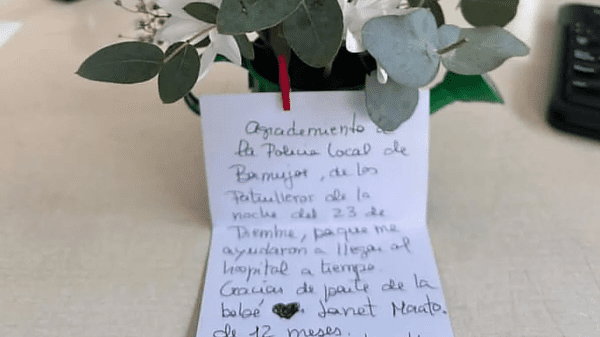 Agradecimiento a
la Policia Local de
Bormujos, de los
Patrulleros de la
noche del 23 de
Diciembre, porque me
ayudaron a llegar al
hospital a tiempo.
Gracias de parte de la
bebé 🖤. Janet
de 12 meses.